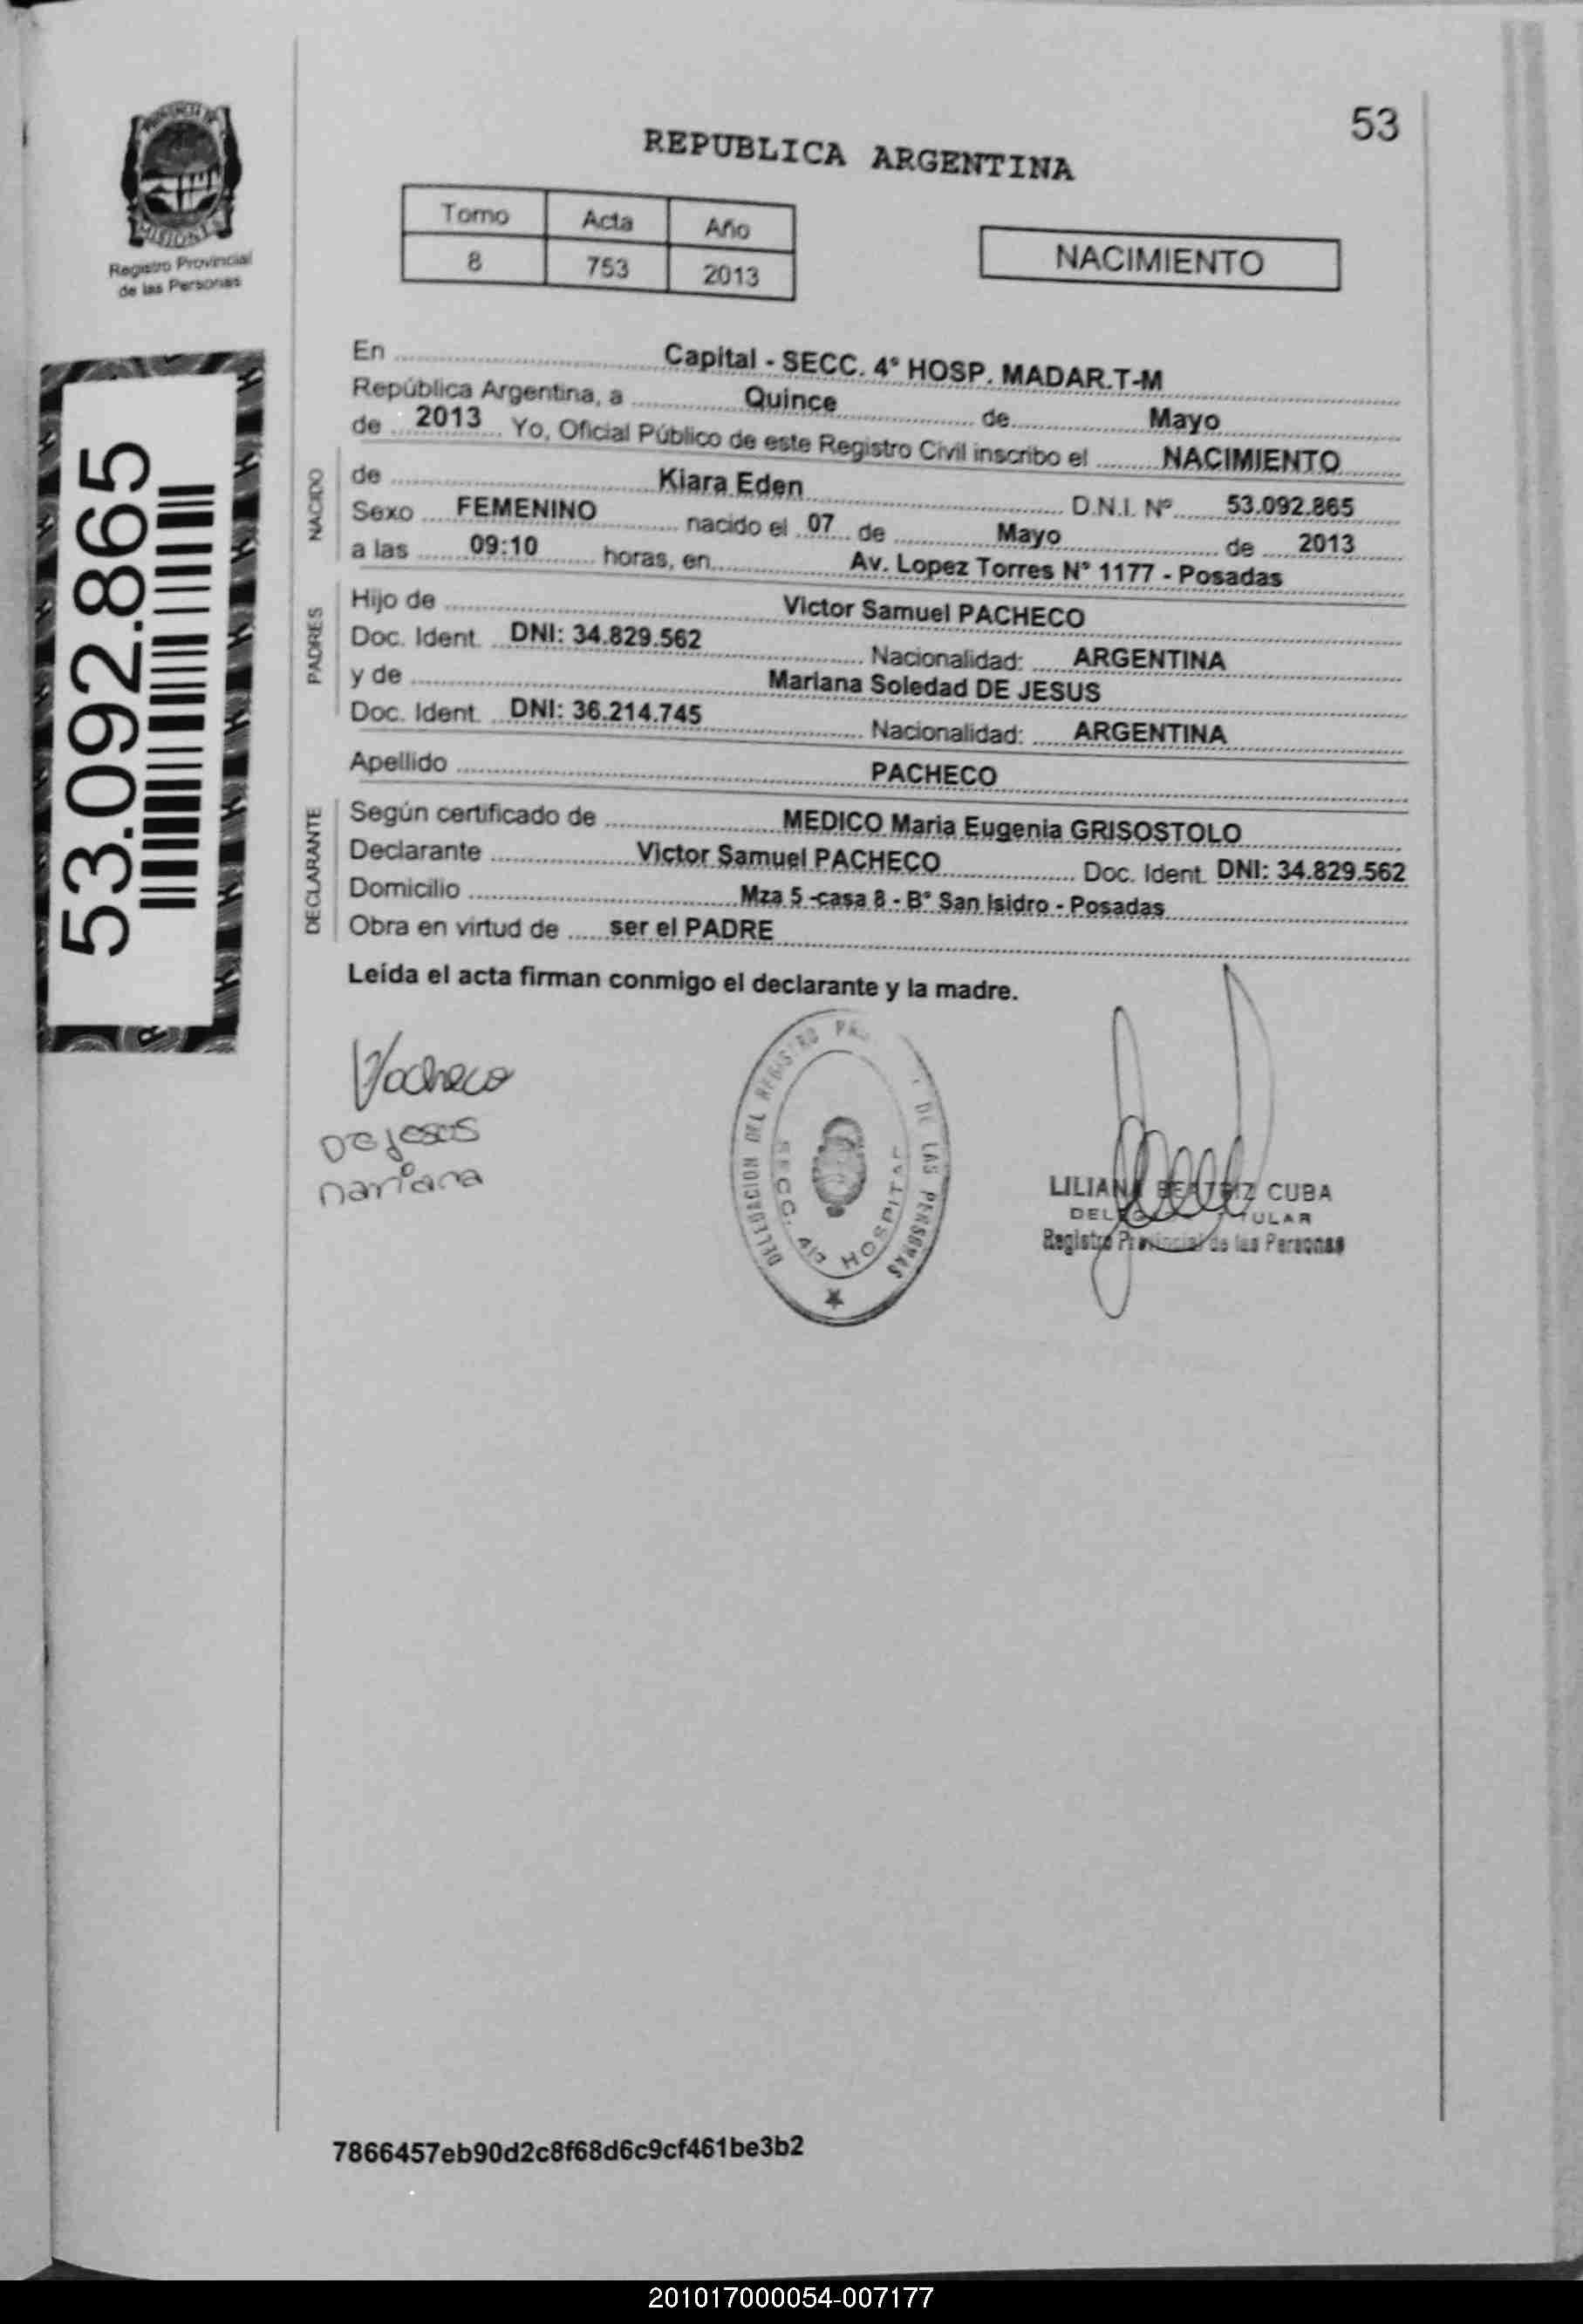 53
PROVINCIA DE
MISIONES
Registro Provincial
de las Personas
REPUBLICA ARGENTINA
Tomo Acta Año
8 753 2013
NACIMIENTO
53.092.865
En Capital - SECC. 4° HOSP. MADAR.T-M
República Argentina, a Quince de Mayo
de 2013 Yo, Oficial Público de este Registro Civil inscribo el NACIMIENTO
NACIDO
de Kiara Eden D.N.I. Nº 53.092.865
Sexo FEMENINO nacido el 07 de Mayo de 2013
a las 09:10 horas, en Av. Lopez Torres N° 1177 - Posadas
PADRES
Hijo de Victor Samuel PACHECO
Doc. Ident. DNI: 34.829.562 Nacionalidad: ARGENTINA
y de Mariana Soledad DE JESUS
Doc. Ident. DNI: 36.214.745 Nacionalidad: ARGENTINA
Apellido PACHECO
DECLARANTE
Según certificado de MEDICO Maria Eugenia GRISOSTOLO
Declarante Victor Samuel PACHECO Doc. Ident. DNI: 34.829.562
Domicilio Mza 5 -casa 8 - B° San Isidro - Posadas
Obra en virtud de ser el PADRE
Leída el acta firman conmigo el declarante y la madre.
VPacheco
De Jesus
mariana
DELEGACION DEL REGISTRO DE LAS PERSONAS
SECC. 4ta HOSPITAL
LILIANA BEATRIZ CUBA
Registro Provincial de las Personas
7866457eb90d2c8f68d6c9cf461be3b2
201017000054-007177